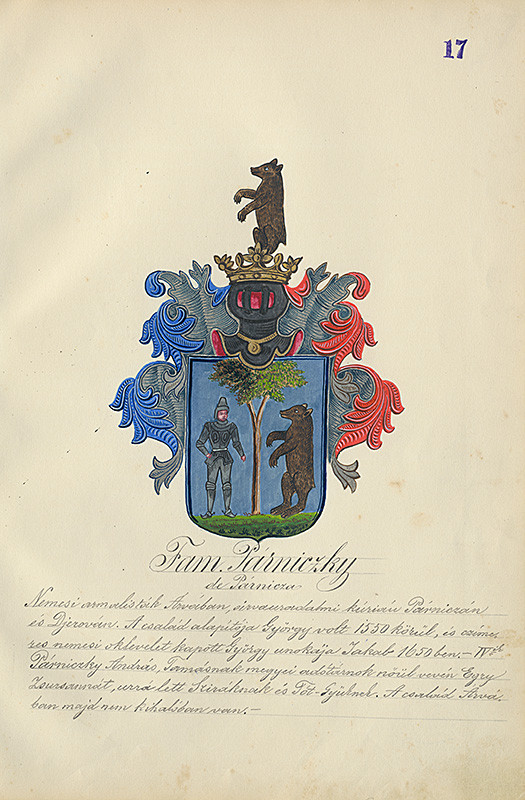 17
Fam. Párniczky
de Párnicza
Nemesi armalisták Árvában, árvauradalmi kuriája Párniczán
és Dierován. A család alapitója György volt 1550 körül, és czime-
res nemesi oklevelet kapott György unokája Jakab 1650 ben. —
Párniczky András, Tamásnak megyei adótárnok nőül vevén Egry
Zsuzsannát, urra lett Sziráknak és Tót-Györknek. A család Árvá-
ban majd nem kihalóban van. —